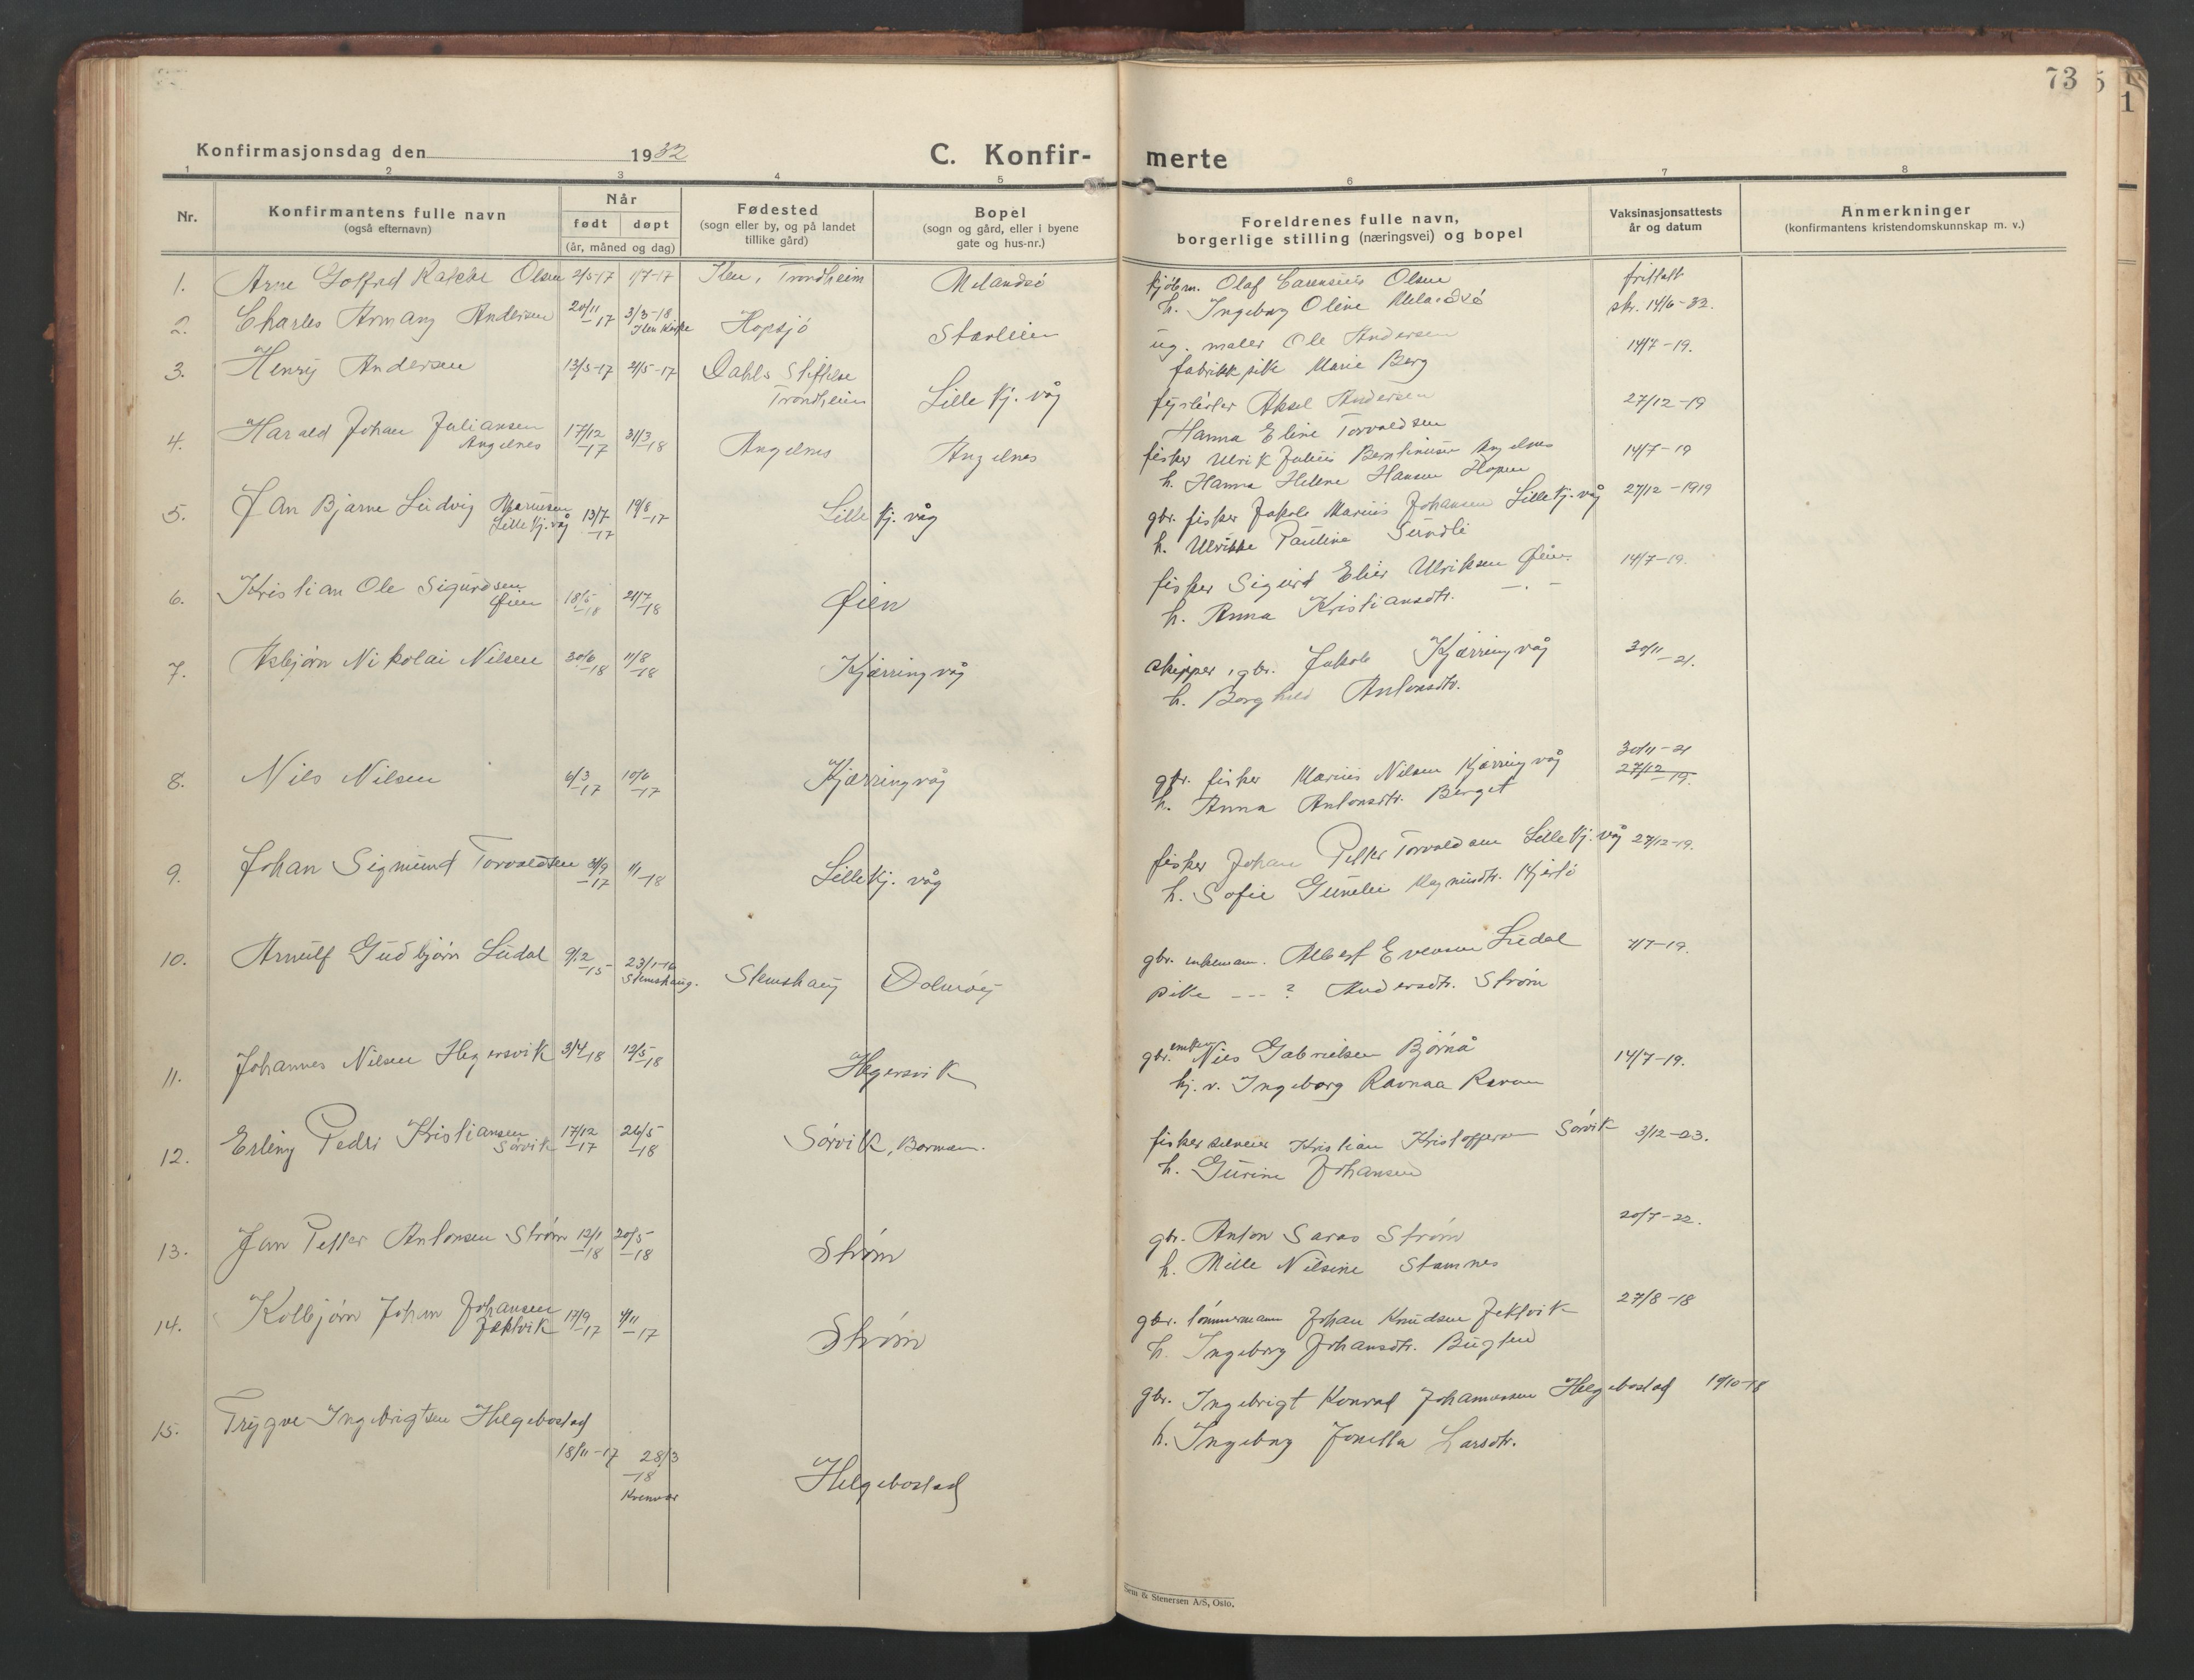 73
Konfirmasjonsdag den 1932
C. Konfir-merte
1 2 3 4 5 6 7 8
Nr.
Konfirmantens fulle navn
(også efternavn)
Når
født døpt
(år, måned og dag)
Fødested
(sogn eller by, og på landet
tillike gård)
Bopel
(sogn og gård, eller i byene
gate og hus-nr.)
Foreldrenes fulle navn,
borgerlige stilling (næringsvei) og bopel
Vaksinasjonsattests
år og datum
Anmerkninger
(konfirmantens kristendomskunnskap m. v.)
1. Arne Olsen 2/5-17 1/7-17 Ilen, Trondheim Melandsø
kjøbm. Olaf Olsen
h. Ingeborg Oline Melandsø
skr. 14/6-32.
2. Charles Armany Andersen 20/11-17 3/3-18 Ilen Kirke Hopsjø
ug. maler Ole Andersen
fabrikkpike Marie Berg
14/7-19.
3. Henry Andersen 13/5-17 21/5-17 Dahls Stiftelse
Trondheim Lille Kj. våg
Aksel Andersen
Hanna Eline Torvaldsen
27/12-19
4. Harald Johan Juliansen
Angelnes 17/12-17 31/3-18 Angelnes Angelnes
fisker Ulrik Julius Berntinusen Angelnes
h. Hanna Helene Hansen Hopen
14/7-19
5. Jan Bjarne Ludvig Mariusen
Lille Kj. våg 13/7-17 19/8-17 Lille Kj. våg
gbr. fisker Jakob Marius Johansen Lille Kj. våg
h. Ulrikke Pauline Sundli
27/12-1919
6. Kristian Ole Sigurdsen
Øien 18/5-18 21/7-18 Øien
fisker Sigurd Elier Ulriksen Øien
h. Anna Kristiansdtr. -.-
14/7-19.
7. Asbjørn Nikolai Nilsen 30/6-18 11/8-18 Kjærringvåg
skipper, gbr. Jakob Kjærringvåg
h. Borghild Antonsdtr.
30/11-21.
8. Nils Nilsen 6/3-17 10/6-17 Kjærringvåg
gbr. fisker Marius Nilsen Kjærringvåg
h. Anna Antonsdtr. Berget
30/11-21
27/12-19.
9. Johan Sigmund Torvaldsen 31/9-17 1/1-18 Lille Kj. våg
fisker Johan Petter Torvaldsen Lille Kj. våg
h. Sofie Gunelie Magnusdtr.
27/12-19.
10. Arnulf Gudbjørn Ludal 9/12-15 23/1-16
Stemshaug. Stemshaug Dolmøy
gbr. enkemann. Albert Evensen Ludal
pike --- ? Andersdtr. Strøm
7/7-19.
11. Johannes Nilsen Hegersvik 3/4-18 12/5-18 Hegersvik
gbr. enkem. Nils Gabrielsen Bjørnå
hj. v. Ingeborg Ravnaa
14/7-19.
12. Erling Peder Kristiansen
Sørvik 17/12-17 26/5-18 Sørvik, Borman.
fisker Kristian Kristoffersen Sørvik
h. Gurine Johansen
3/12-23.
13. Jan Petter Antonsen Strøm 12/1-18 20/5-18 Strøm
gbr. Anton Saras Strøm
h. Mille Nilsine Stamnes
20/7-22.
14. Kolbjørn Johan Johansen
Jektvik 17/9-17 4/11-17 Strøm
gbr. tømmermann Johan Knudsen Jektvik
h. Ingeborg Johansdtr. Bugten
27/8-18
15. Trygve Ingebrigtsen Helgebostad
18/11-17 28/3-18
Kvenvær
Helgebostad
gbr. Ingebrigt Konrad Johannessen Helgebostad
h. Ingeborg Jonetta Larsdtr.
19/10-18
Sem & Stenersen A/S, Oslo.